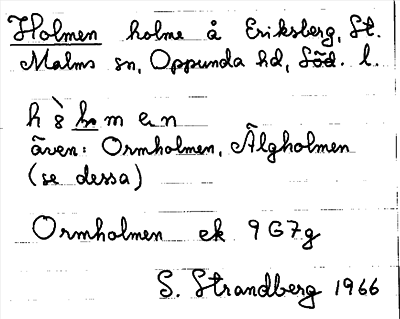 Holmen holme å Eriksberg, St.
Malms sn, Oppunda hd, Söd. l.
även: Ormholmen, Älgholmen
(se dessa)
Ormholmen ek 9G7g
S. Strandberg 1966